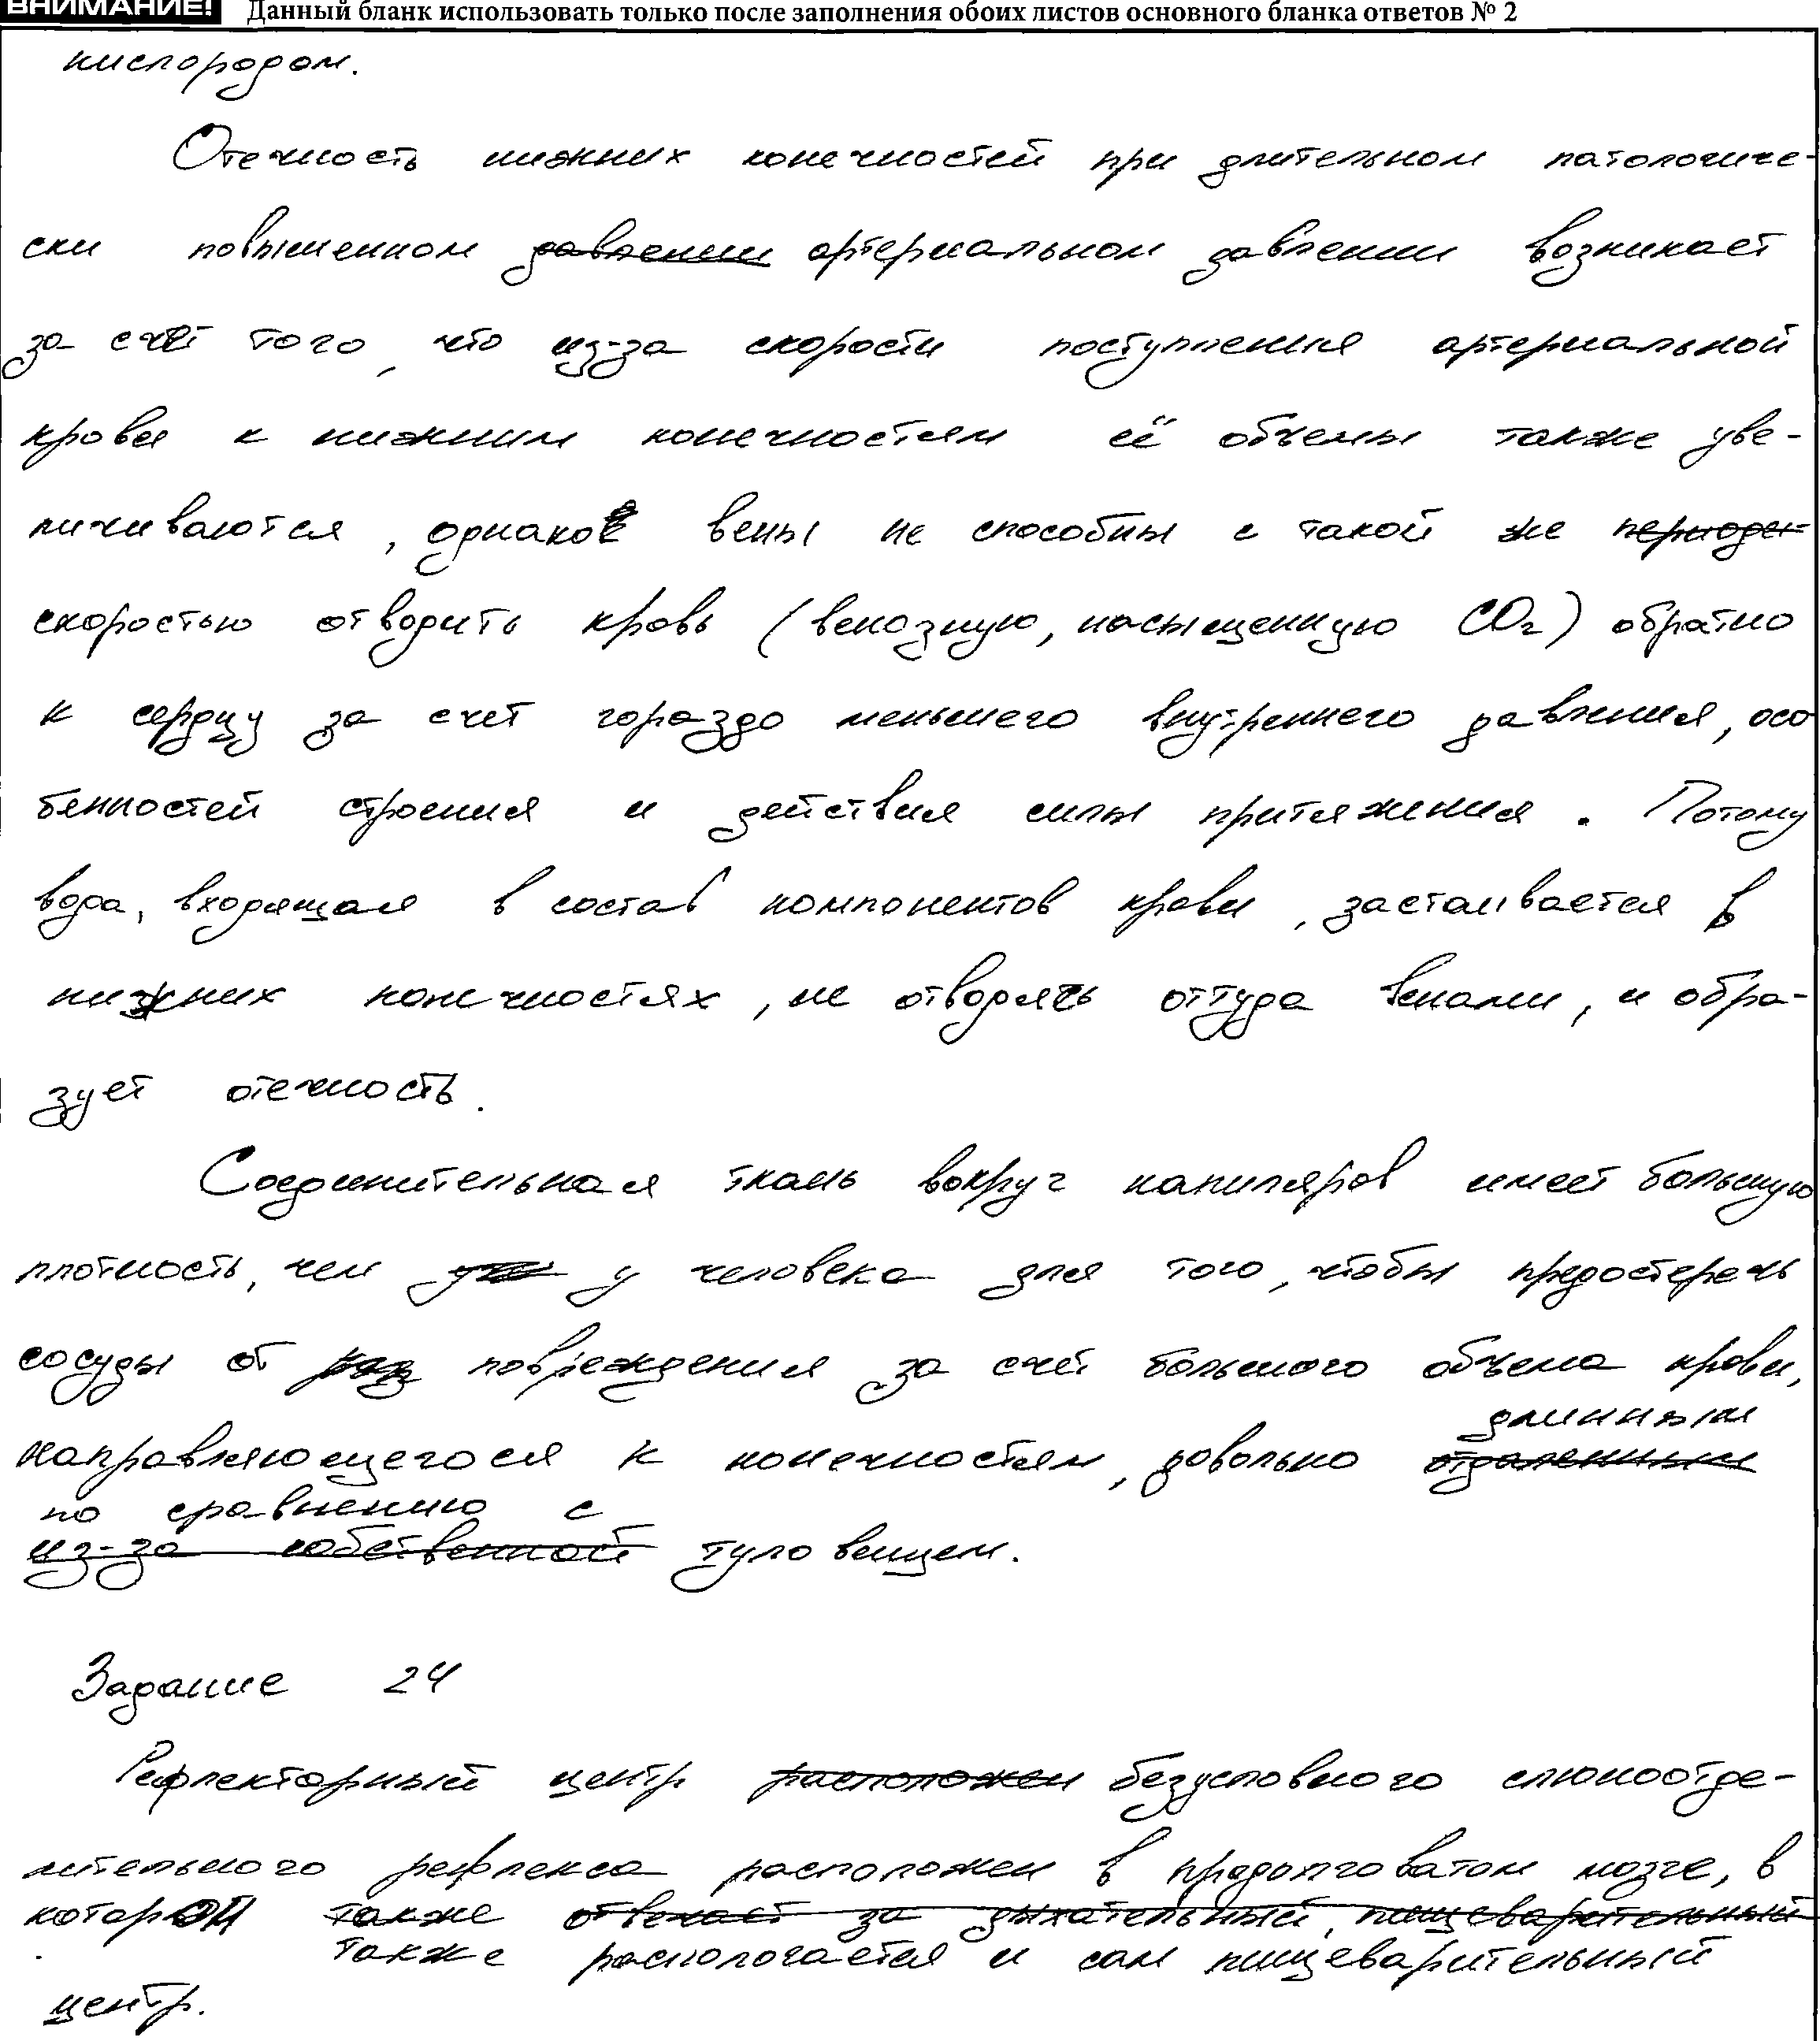 ВНИМАНИЕ! Данный бланк использовать только после заполнения обоих листов основного бланка ответов № 2
кислородом.
Отечность нижних конечностей при длительном патологиче-
ски повышенном давлении артериальном давлении возникает
за счёт того, что из-за скорости поступления артериальной
крови к нижним конечностям её объемы также уве-
личиваются, однако вены не способны с такой же
скоростью отводить кровь (венозную, насыщенную CO₂) обратно
к сердцу за счет гораздо меньшего внутреннего давления, осо
бенностей строения и действия силы притяжения. Потому
вода, входящая в состав компонентов крови, застаивается в
нижних конечностях, не отводясь оттуда венами, и обра-
зует отечность.
Соединительная ткань вокруг капиляров имеет большую
плотность, чем у человека для того, чтобы предостеречь
сосуды от повреждения за счёт большого объема крови,
длинным
направляющегося к конечностям, довольно отдаленным
по сравнению с
из-за собственной туловищем.
Задание 24
Рефлекторный центр расположен безусловного слюноотде-
лительного рефлекса расположен в продолговатом мозге, в
котором также отвечает за дыхательный, пищеварительный
также распологается и сам пищеварительный
центр.